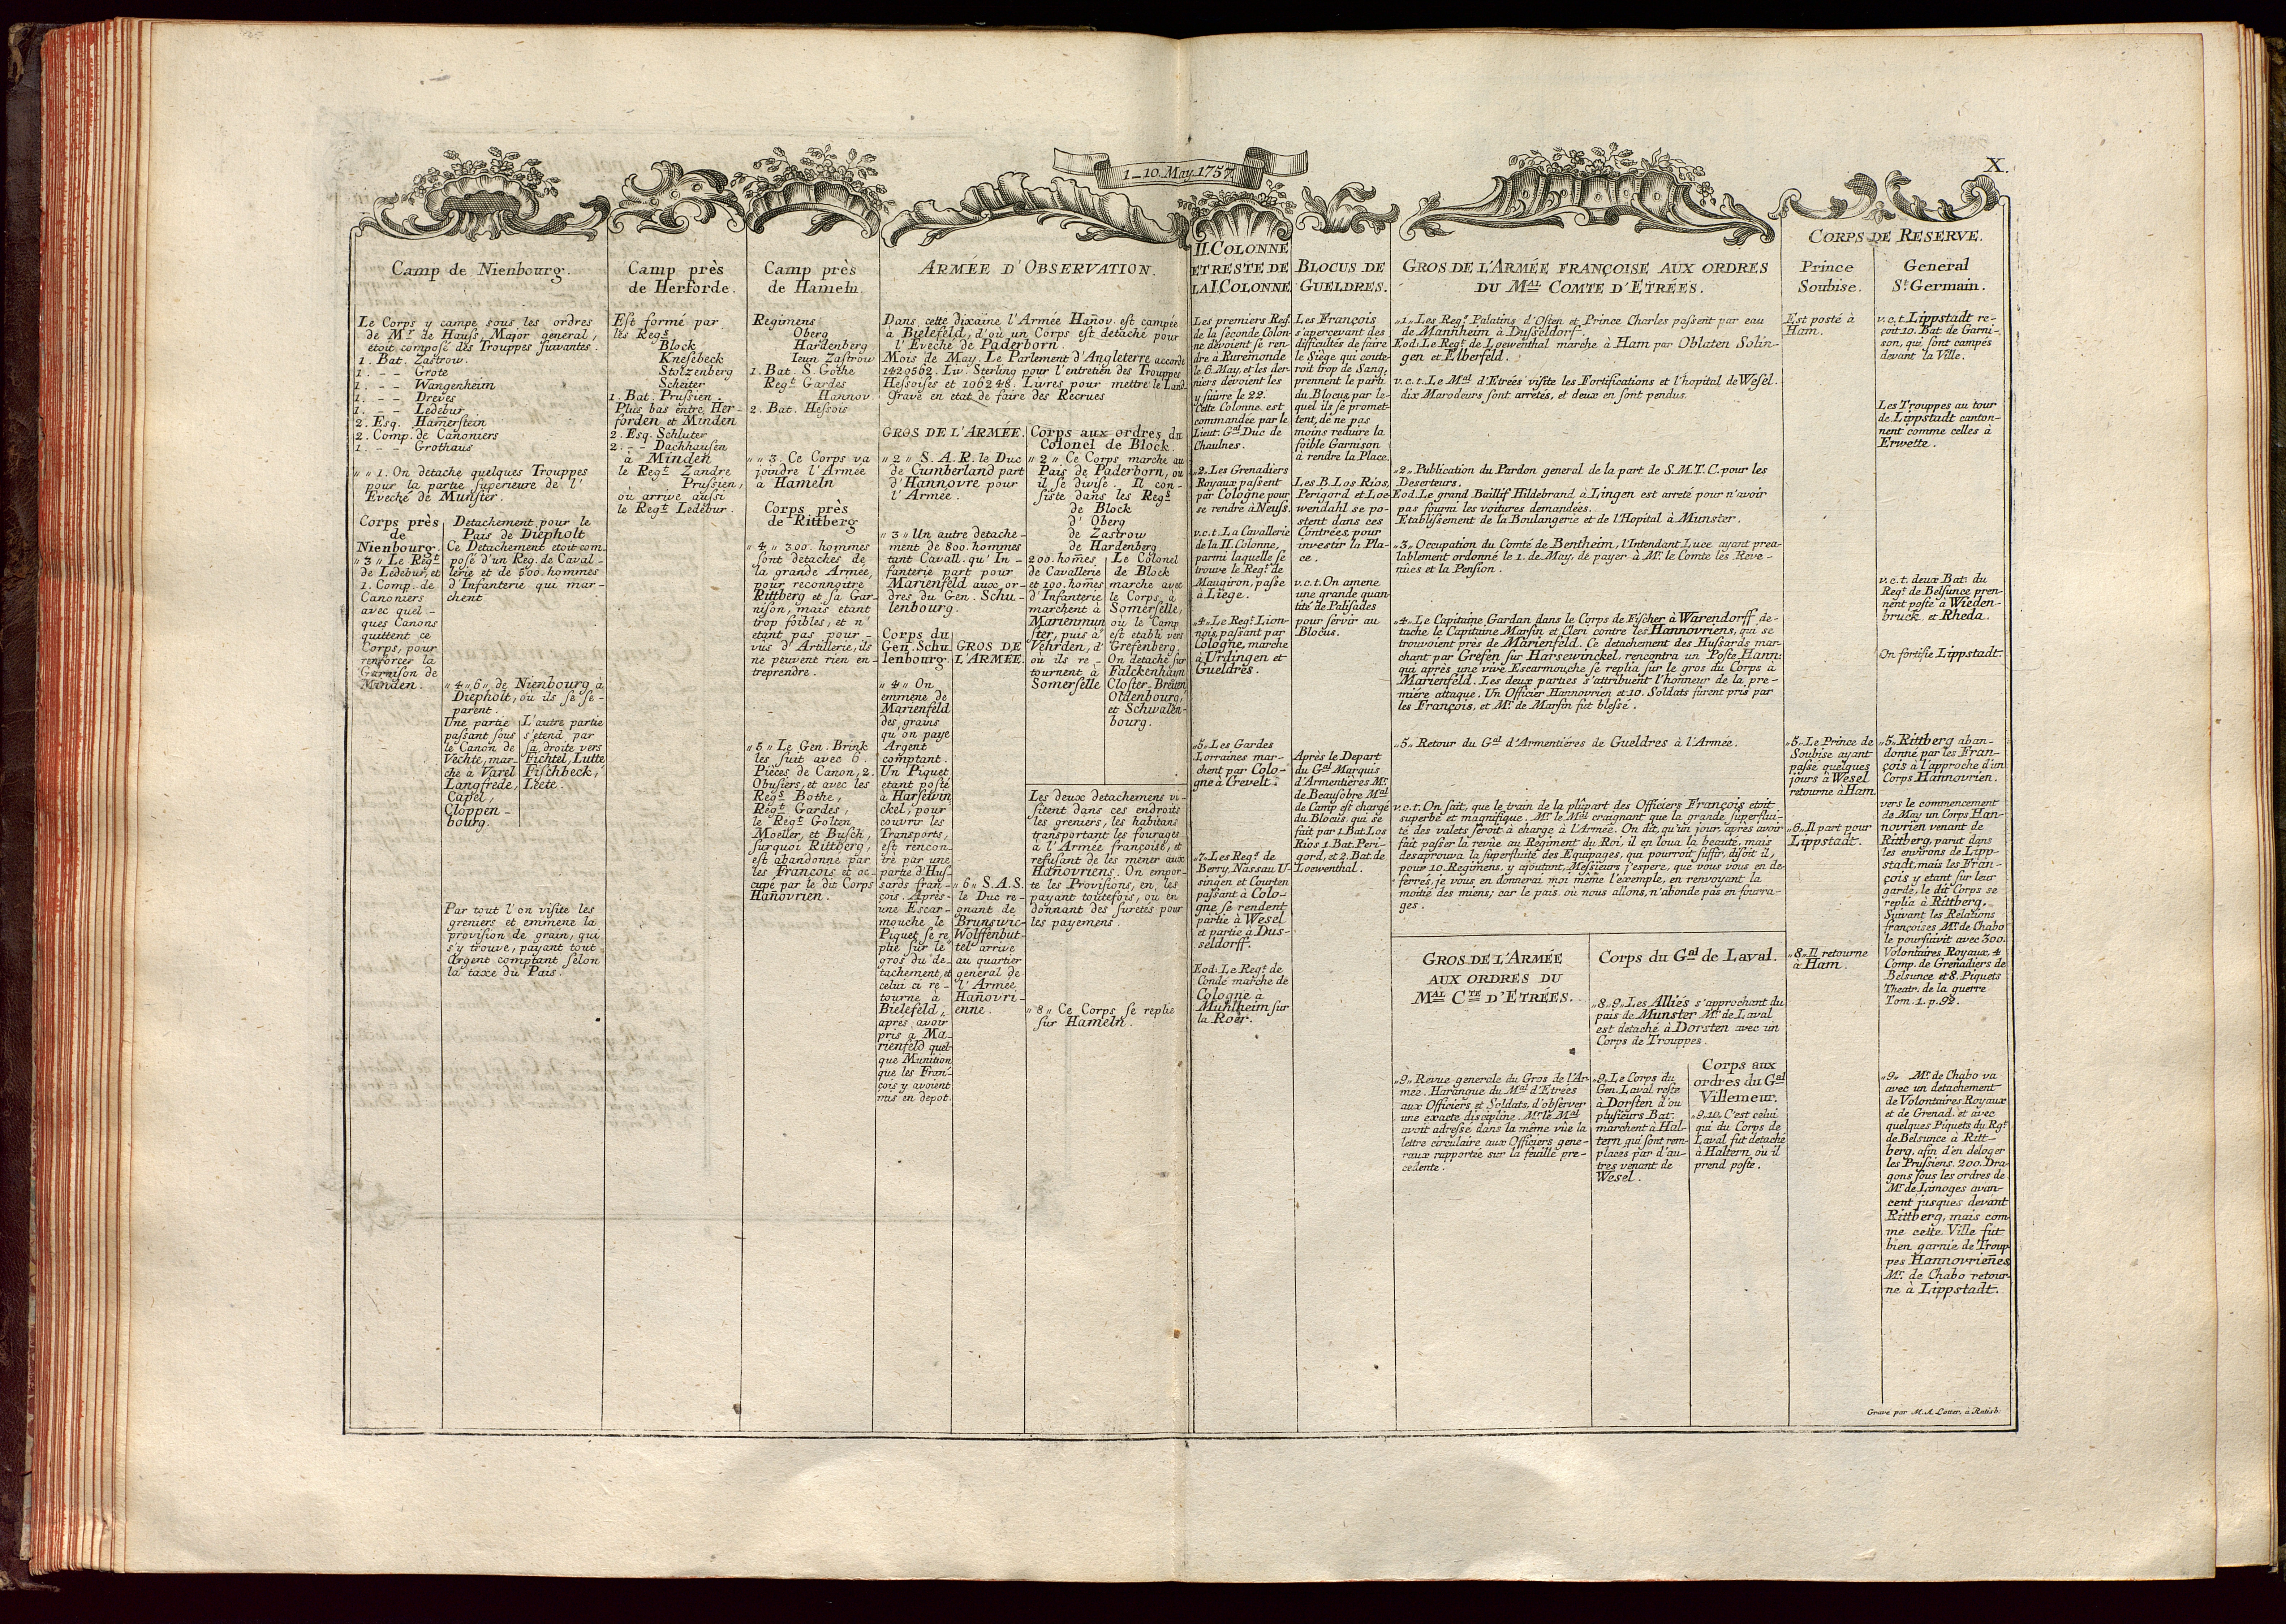 1–10. May. 1757.
X.
Camp de Nienbourg.
Le Corps y campe sous les ordres
de Mr. de Hauss Major general,
etoit composé des Trouppes suivantes.
1. Bat. Zastrow.
1. – – Grote
1. – – Wangenheim
1. – – Dreves
1. – – Ledebur
2. Esq. Ham̄erstein
2. Comp. de Canoniers
1. – – Grothaus
„ „ 1. On detache quelques Trouppes
pour la partie superieure de l'
Eveché de Munster.
Corps près
de
Nienbourg.
„ 3 „ Le Regt
de Ledebur, et
1. Comp. de
Canoniers
avec quel –
ques Canons
quittent ce
Corps, pour
renforcer la
Garnison de
Minden.
Detachement pour le
Païs de Diepholt
Ce Detachement etoit com–
posé d'un Reg. de Caval –
lerie et de 500. hommes
d'Infanterie qui mar–
chent
„ 4 „ 6 „ de Nienbourg à
Diepholt, où ils se se –
parent.
Une partie
passant sous
le Canon de
Vechte, mar–
che à Varel
Langfrede,
Capel,
Cloppen –
bourg.
L'autre partie
s'etend par
sa droite vers
Fichtel, Lutte
Fischbeck,
Leete.
Par tout l'on visite les
greniers et emmene la
provision de grain, qui
s'y trouve, payant tout
Argent comptant selon
la taxe du Païs.
Camp près
de Herforde.
Est formé par
les Regs
Block
Knesebeck
Stolzenberg
Scheiter
1. Bat. Prussien.
Plus bas entre Her –
forden et Minden
2. Esq. Schluter
2. – – Dachhausen
à Minden
le Regt. Zandre
Prussien,
où arrive aussi
le Regt. Ledebur.
Camp près
de Hameln.
Regimens
Oberg
Hardenberg
Ieun Zastrow
1. Bat. S. Gothe
Regt. Gardes
Hannov.
2. Bat. Hessois
„ „ 3. Ce Corps va
joindre l'Armée
à Hameln
Corps près
de Rittberg
„ 4 „ 300. hommes
sont detachés de
la grande Armée,
pour reconnoitre
Rittberg et sa Gar–
nison, mais etant
trop foibles, et n'
etant pas pour –
vus d'Artillerie, ils
ne peuvent rien en–
treprendre.
„ 5 „ Le Gen. Brink
les suit avec 6.
Piéces de Canon, 2.
Obusiers, et avec les
Regs Bothe,
Regt. Gardes,
le Regt. Golten
Moeller, et Busch,
surquoi Rittberg,
est abandonné par
les François et oc–
cupé par le dit Corps
Hanovrien.
ARMÉE D'OBSERVATION.
Dans cette dixaine l'Armée Han̄ov. est campée
à Bielefeld, d'où un Corps est detaché pour
l'Eveché de Paderborn.
Mois de May. Le Parlement d'Angleterre accorde
1429562. Liv. Sterling pour l'entretien des Trouppes
Hessoises et 106248. Livres pour mettre le Land
grave en etat de faire des Recrues
GROS DE L'ARMÉE.
„ 2 „ S. A. R. le Duc
de Cumberland part
d'Hannovre pour
l'Armée.
„ 3 „ Un autre detache–
ment de 800. hommes
tant Cavall. qu' In –
fanterie part pour
Marienfeld aux or–
dres du Gen. Schu –
lenbourg.
Corps du
Gen. Schu
lenbourg.
„ 4 „ On
emmene de
Marienfeld
des, grains
qu'on paye
Argent
comptant.
Un Piquet
etant posté
à Harsewin
ckel, pour
couvrir les
Transports,
est rencon–
tré par une
partie d'Hus
sards fran–
çois. Après
une Escar–
mouche le
Piquet se re
plie sur le
gros du de–
tachement, et
celui ci re–
tourne à
Bielefeld,
aprés avoir
pris à Ma–
rienfeld quel–
que Munition
que les Fran–
çois y avoient
mis en depot.
GROS DE
L'ARMÉE.
„ 6 „ S. A. S.
le Duc re –
gnant de
Brunswic–
Wolffenbut–
tel arrive
au quartier
general de
l'Armée
Hanovri–
enne.
Corps aux ordres du
Colonel de Block.
„ 2 „ Ce Corps marche au
Païs de Paderborn, où
il se divise. Il con –
siste dans les Regs
de Block
d'Oberg
de Zastrow
de Hardenberg
200. hom̄es
de Cavallerie
et 100. hom̄es
d'Infanterie
marchent à
Marienmun
ster, puis à
Vehrden, d'
où ils re –
tournent à
Somerselle
Le Colonel
de Block
marche avec
le Corps à
Somerselle,
où le Camp
est établi vers
Grefenberg.
On detaché sur
Falckenhayn
Closter-Breun
Oldenbourg,
et Schwalen–
bourg.
Les deux detachemens vi–
sitent dans ces endroits
les greniers, les habitans
transportant les fourages
à l'Armée françoise, et
refusant de les mener aux
Hanovriens. On empor–
te les Provisions, en les
payant toutefois, ou en
donnant des suretés pour
les payemens.
„ 8 „ Ce Corps se replie
sur Hameln.
II. COLONNE
ET RESTE DE
LA I. COLONNE.
Les premiers Regs
de la seconde Colon–
ne devoient se ren–
dre à Ruremonde
le 6. May, et les der–
niers devoient les
y suivre le 22.
Cette Colonne est
commandée par le
Lieut. Gal Duc de
Chaulnes.
„ 2. Les Grenadiers
Royaux passent
par Cologne pour
se rendre à Neuss.
v. c. t. La Cavallerie
de la II. Colonne,
parmi laquelle se
trouve le Regt. de
Maugiron, passe
à Liege.
„ 4 „ Le Regt. Lion–
nois, passant par
Cologne, marche
à Urdingen et
Gueldres.
„ 5 „ Les Gardes
Lorraines mar–
chent par Colo–
gne à Crevelt.
„ 7. Les Regs. de
Berry, Nassau U–
singen et Courten
passant à Colo–
gne se rendent
partie à Wesel
et partie à Dus–
seldorff.
Eod: Le Regt. de
Condé marche de
Cologne à
Muhlheim sur
la Roër.
BLOCUS DE
GUELDRES.
Les François
s'apercevant des
difficultés de faire
le Siège qui coute–
roit trop de Sang,
prennent le parti
du Blocus, par le–
quel ils se promet–
tent, de ne pas
moins reduire la
foible Garnison
à rendre la Place.
Les B. Los Rios,
Perigord et Loe–
wendahl se po–
stent dans ces
Contrées, pour
investir la Pla–
ce.
v. c. t. On amene
une grande quan
tité de Palisades
pour servir au
Blocus.
Après le Depart
du Gal Marquis
d'Armentières Mr.
de Beausobre Mal
de Camp est chargé
du Blocus, qui se
fait par 1. Bat. Los
Rios 1. Bat. Peri–
gord, et 2. Bat. de
Loewenthal.
GROS DE L'ARMÉE FRANÇOISE AUX ORDRES
DU MAL COMTE D'ETRÉES.
„ 1 „ Les Regs. Palatins d'Osten et Prince Charles passent par eau
de Mannheim à Dusseldorf.
Eod: Le Regt. de Loewenthal marche à Ham par Oblaten Solin–
gen et Elberfeld.
v. c. t. Le Mal d'Etreés visite les Fortifications et l'hopital de Wesel.
dix Marodeurs sont arretés, et deux en sont pendus.
„ 2 „ Publication du Pardon general de la part de S. M. T. C. pour les
Deserteurs.
Eod. Le grand Baillif Hildebrand à Lingen est arreté pour n'avoir
pas fourni les voitures demandées.
Etablissement de la Boulangerie et de l'Hopital à Munster.
„ 3 „ Occupation du Comté de Bentheim, l'Intendant Luce ayant prea–
lablement ordonné le 1. de May, de payer à Mr. le Comte les Reve–
nües et la Pension.
„ 4 „ Le Capitaine Gardan dans le Corps de Fischer à Warendorff de–
tache le Capitaine Marsin et Cleri contre les Hannovriens, qui se
trouvoient prés de Marienfeld. Ce detachement des Hussards mar–
chant par Grefen sur Harsewinckel, rencontra un Poste Hann:
qui après une vive Escarmouche se replia sur le gros du Corps à
Marienfeld. Les deux parties s'attribuent l'honneur de la pre–
miére attaque. Un Officier Hannovrien et 10. Soldats furent pris par
les François, et Mr. de Marsin fut blessé.
„ 5 „ Retour du Gal d'Armentiéres de Gueldres à l'Armée.
v. c. t. On sait, que le train de la plûpart des Officiers François etoit
superbe et magnifique. Mr. le Mal craignant que la grande superflui–
té des valets seroit à charge à l'Armée. On dit, qu'un jour, après avoir
fait passer la revüe au Regiment du Roi, il en loua la beauté, mais
desaprouva la superfluité des Equipages, qui pourroit suffir, disoit il,
pour 10. Regimens, y ajoutant, Messieurs j'espere, que vous vous en de–
ferrés, je vous en donnerai moi même l'exemple, en renvoyant la
moitié des miens; car le païs où nous allons, n'abonde pas en fourra–
ges.
GROS DE L'ARMÉE
AUX ORDRES DU
MAL CTE D'ETRÉES.
„ 9 „ Revue generale du Gros de l'Ar–
mée. Harangue du Mal d'Etrées
aux Officiers et Soldats, d'observer
une exacte discipline. Mr. le Mal
avoit adressé dans la même vüe la
lettre circulaire aux Officiers gene–
raux rapportée sur la feuille pre–
cedente.
Corps du Gal de Laval.
„ 8 „ 9 „ Les Alliés s'approchant du
païs de Munster Mr. de Laval
est detaché à Dorsten avec un
Corps de Trouppes.
„ 9. Le Corps du
Gen. Laval reste
à Dorsten d'où
plusieurs Bat.
marchent à Hal–
tern qui sont rem–
placés par d'au–
tres venant de
Wesel.
Corps aux
ordres du Gal
Villemeur.
„ 9. 10. C'est celui
qui du Corps de
Laval fut detaché
à Haltern, où il
prend poste.
CORPS DE RESERVE.
Prince
Soubise.
Est posté à
Ham.
„ 5 „ Le Prince de
Soubise ayant
passé quelques
jours à Wesel
retourne à Ham
„ 6 „ Il part pour
Lippstadt.
„ 8 „ Il retourne
à Ham.
General
St. Germain.
v. c. t. Lippstadt re–
çoit 10. Bat. de Garni–
son, qui sont campés
devant la Ville.
Les Trouppes au tour
de Lippstadt canton–
nent comme celles à
Erwette.
v. c. t. deux Bat. du
Regt. de Belsunce pren–
nent poste à Wieden–
bruck et Rheda.
On fortifie Lippstadt.
„ 5 „ Rittberg aban–
donné par les Fran–
çois à l'approche d'un
Corps Hannovrien.
vers le commencement
de May un Corps Han–
novrien venant de
Rittberg, parut dans
les environs de Lipp–
stadt, mais les Fran–
çois y etant sur leur
garde, le dit Corps se
replia à Rittberg.
Suivant les Relations
françoises Mr. de Chabo
le poursuivit avec 300.
Volontaires Royaux, 4
Comp. de Grenadiers de
Belsunce et 8. Piquets
Theatr. de la guerre
Tom. 1. p. 92.
„ 9 „ Mr. de Chabo va
avec un detachement
de Volontaires Royaux
et de Grenad. et avec
quelques Piquets du Rgt
de Belsunce à Ritt–
berg, afin d'en deloger
les Prussiens. 200. Dra–
gons sous les ordres de
Mr. de Limoges avan–
cent jusques devant
Rittberg, mais com–
me cette Ville fut
bien garnie de Troup
pes Hannovrien̄es
Mr. de Chabo retour–
ne à Lippstadt.
Gravé par M. A. Lotter, à Ratisb.